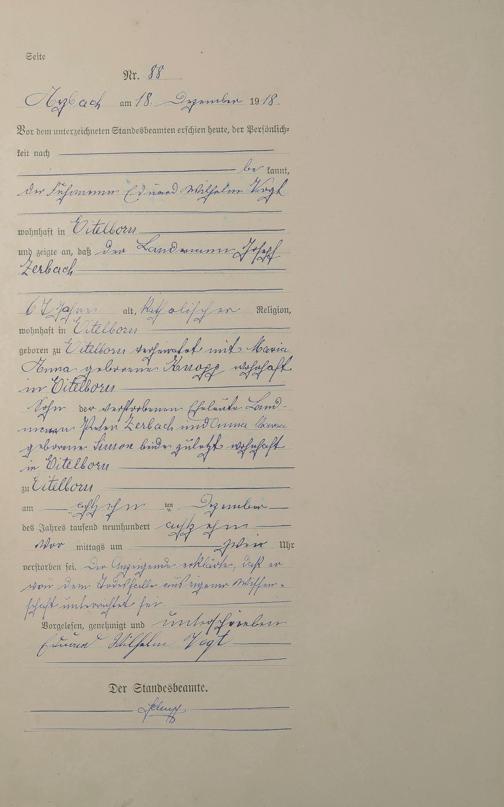 Seite
Nr. 88
Arzbach am 18. Dezember 1918.
Vor dem unterzeichneten Standesbeamten erschien heute, der Persönlich-
keit nach
be kannt,
der Fuhrmann Eduard Wilhelm Vogt
wohnhaft in Eitelborn
und zeigte an, daß der Landmann Joseph
Zerbach
67 Jahre alt, katholischer Religion,
wohnhaft in Eitelborn
geboren zu Eitelborn verheiratet mit Maria
Anna geborene Knopp wohnhaft
in Eitelborn
Sohn der verstorbenen Eheleute Land-
mann Peter Zerbach und Anna Maria
geborene Simon beide zuletzt wohnhaft
in Eitelborn
zu Eitelborn
am achtzehn ten Dezember
des Jahres tausend neunhundert achtzehn
Vor mittags um zwei Uhr
verstorben sei. Der Anzeigende erklärte, daß er
von dem Todesfalle aus eigener Wissen-
schaft unterrichtet sei
Vorgelesen, genehmigt und unterschrieben
Eduard Wilhelm Vogt
Der Standesbeamte.